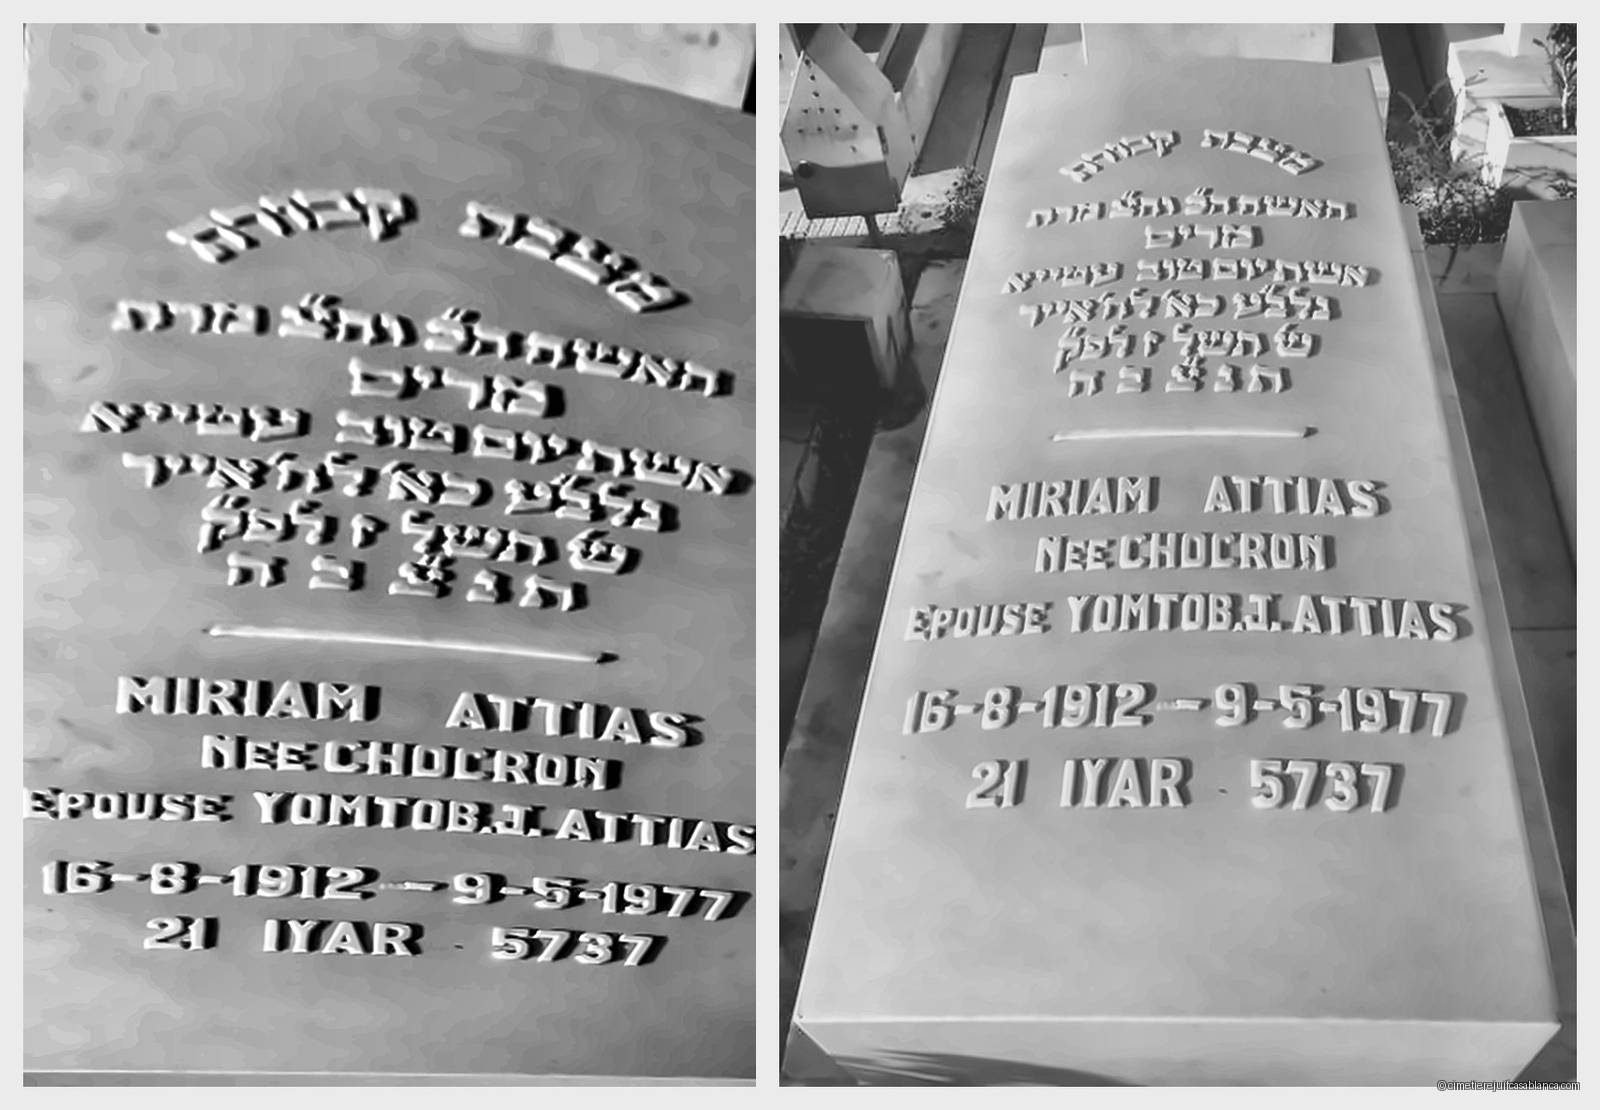 מצבת קבורת
האשה הכ״ והצ״ מרת
מרים
אשת יום טוב עטייא
נלב״ע כא׳ לח׳ אייר
ש׳ תשל״ז לפ״ק
ת נ צ״ ב ה
MIRIAM ATTIAS
NEE CHOCRON
EPOUSE YOMTOB.J. ATTIAS
16-8-1912 - 9-5-1977
21 IYAR 5737
מצבת קבורת
האשה הכ״ והצ״ מרת
מרים
אשת יום טוב עטייא
נלב״ע כא׳ לח׳ אייר
ש׳ תשל״ז לפ״ק
ת נ צ״ ב ה
MIRIAM ATTIAS
NEE CHOCRON
EPOUSE YOMTOB.J. ATTIAS
16-8-1912 - 9-5-1977
21 IYAR 5737
©cimetierejuifcasablanca.com